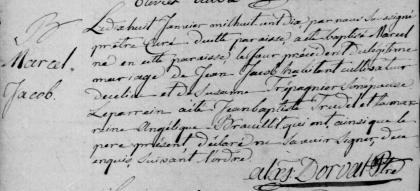 B
Marcel
Jacob.
Le dix huit Janvier mil huit cent dix par nous soussigné
prêtre Curé de cette paroisse a été baptisé Marcel
né en cette paroisse le jour précédent du légitime
mariage de Jean Jacob habitant cultivateur
de ce lieu et de Susanne Trépagnier son épouse
Le parrain a été Jean Baptiste Trudel et la mar-
reine Angélique Brauillt qui ont, ainsi que le
pere présent, déclaré ne savoir signer, de ce
enquis, suivant l'ordre
Alexs Dorval Ptre